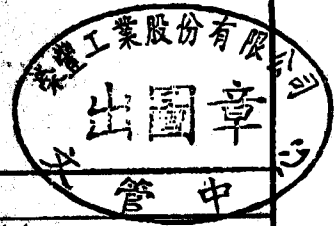 榮豐工業股份有限公司
出圖章
文管中心